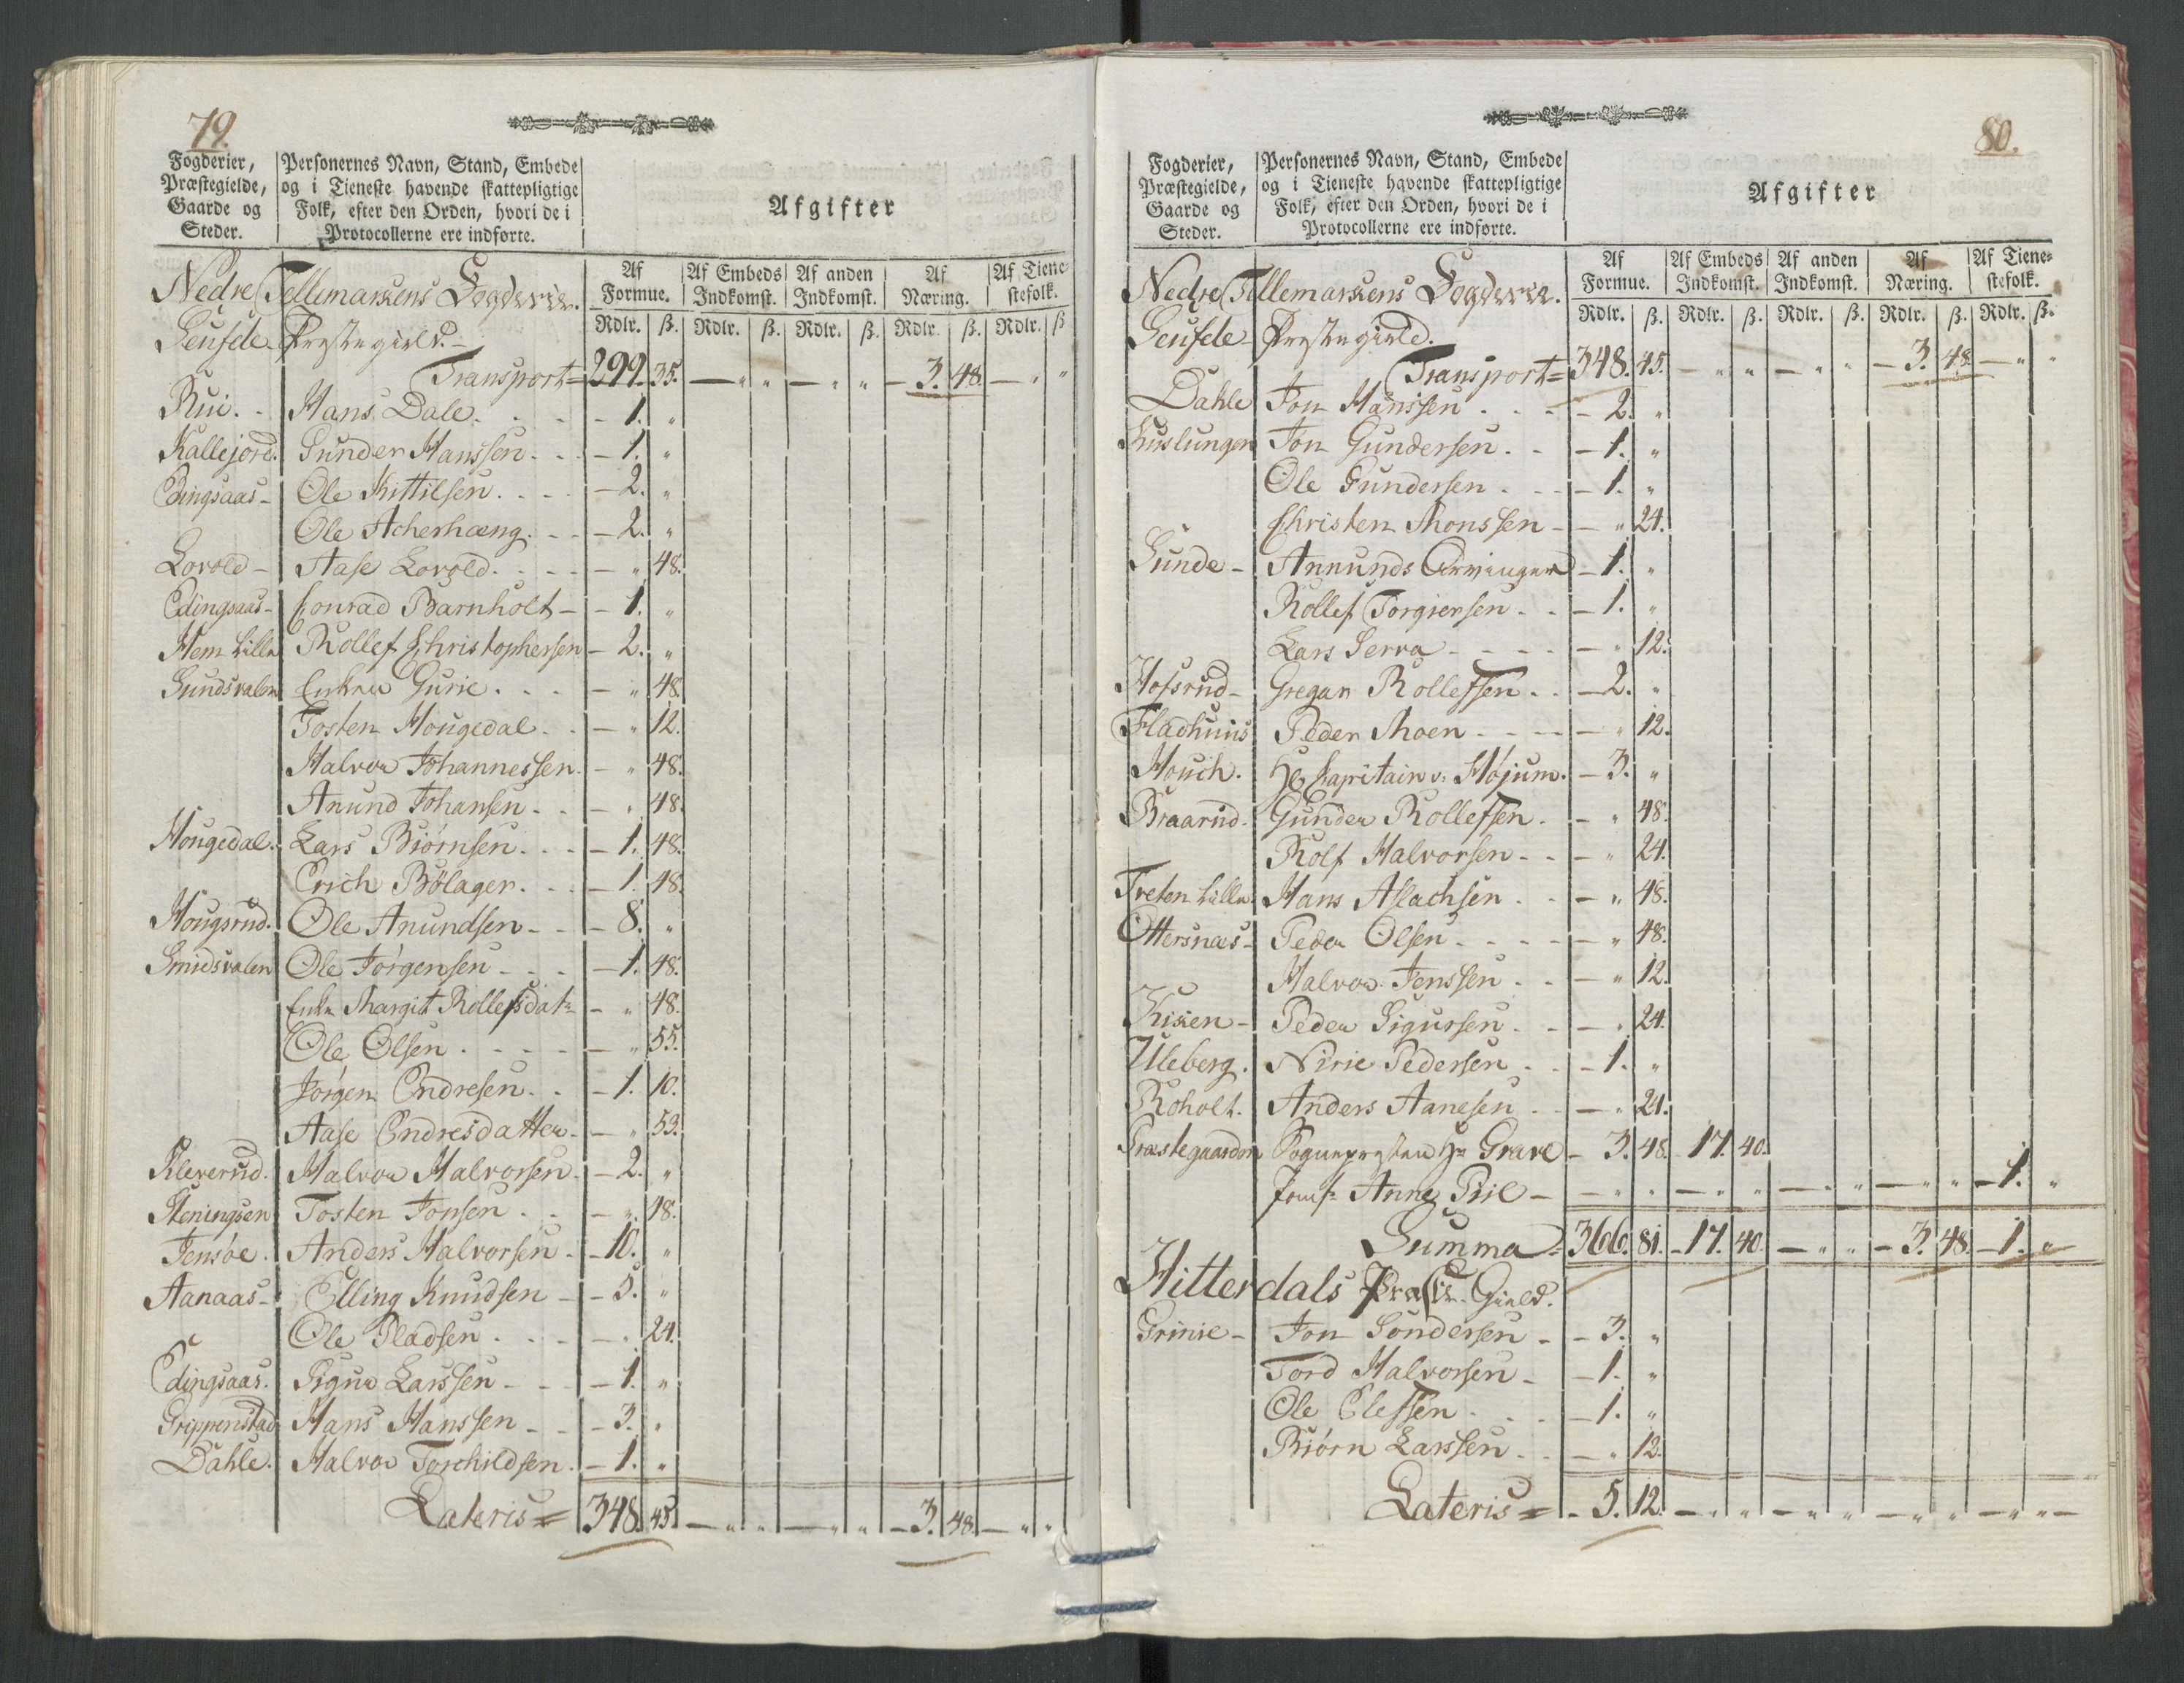 79.
Fogderier, Præstegielde, Gaarde og Steder.
Personernes Navn, Stand, Embede og i Tieneste havende skattepligtige Folk, efter den Orden, hvori de i Protocollerne ere indførte.
Afgifter
Af Formue. Af Embeds Indkomst. Af anden Indkomst. Af Næring. Af Tienestefolk.
Rdlr. ß. Rdlr. ß. Rdlr. ß. Rdlr. ß. Rdlr. ß
Nedre Tellemarkens Fogderie.
Seufde Præstegield.
Transport= 299. 35. — " " — " " — 3. 48. — " "
Rui. Hans Dale. — 1. "
Kallejord. Gunder Hanssen. — 1. "
Edingsaas — Ole Kittilsen. — 2. "
Ole Acherhæng. — 2. "
Lovold — Aase Lovold. — " 48.
Edingsaas — Conrad Barnholt — 1. "
Hem Lille Rollef Christophersen — 2. "
Sundsvalen Enken Gurie. — " 48.
Tosten Hougedal. — " 12.
Halvor Johannessen. — " 48.
Anund Johansen. — " 48.
Hougedal. Lars Biørnsen. — 1. 48.
Erich Bølager. — 1. 48.
Hougsrud. Ole Anundsen — 8. "
Smidsvalen Ole Jørgensen — 1. 48.
Enke Margit Rollefsdatr — " 48.
Ole Olsen. — " 55.
Jørgen Endresen. — 1. 10.
Aase Endresdatter — " 53.
Kleverud. Halvor Halvorsen. — 2. "
Steningen Tosten Jonsen. — " 18.
Jensøe. Anders Halvorsen — 10. "
Aanaas — Elling Knudsen — 5. "
Ole Pladsen. — " 24.
Edingsaas. Sigur Larssen — 1. "
Grippenstad Hans Hanssen — 3. "
Dahle. Halvor Torchildsen. — 1. "
Lateris = 348. 45. — " " — " " — 3. 48. — " "
80.
Fogderier, Præstegielde, Gaarde og Steder.
Personernes Navn, Stand, Embede og i Tieneste havende skattepligtige Folk, efter den Orden, hvori de i Protocollerne ere indførte.
Afgifter
Af Formue. Af Embeds Indkomst. Af anden Indkomst. Af Næring. Af Tienestefolk.
Rdlr. ß. Rdlr. ß. Rdlr. ß. Rdlr. ß. Rdlr. ß.
Nedre Tellemarkens Fogderie.
Seufde Præstegield.
Transport= 348. 45. — " " — " " — 3. 48. — " "
Dahle Jon Hanssen. — 2. "
Kuslungen Jon Gundersen. — 1. "
Ole Gundersen. — 1. "
Christen Monssen — " 24.
Sunde — Annunds Arvinger — 1. "
Rollef Torgiersen. — 1. "
Lars Serva — " 12.
Hofsrud — Gregar Rollefsen. — 2. "
Fladhuus Peder Moen — " 12.
Houch. Hr Capitain v. Højum. — 3. "
Braarud. Gunder Rollefsen. — " 48.
Rolf Halvorsen — " 24.
Treten Lille. Hans Aslachsen. — " 48.
Ottersnæs — Peder Olsen — " 48.
Halvor Jenssen. — " 12.
Kisen — Peder Sigursen. — " 24.
Uleberg. Nirie Pedersen. — 1. "
Roholt. Anders Aanesen. — " 24.
Præstegaarden Sognepræsten Hr Grave — 3. 48. 17. 40.
Jomfr Anne Piil — — " " — " " — " " — " " — 1. "
Summa = 366. 81. 17. 40. — " " — 3. 48. — 1. "
Hitterdals Præste Gield.
Grinie — Jon Søndersen — 3. "
Tord Halvorsen — 1. "
Ole Elefsen. — 1. "
Biørn Larssen. — " 12.
Lateris = — 5. 12. — " " — " " — " " — " " —